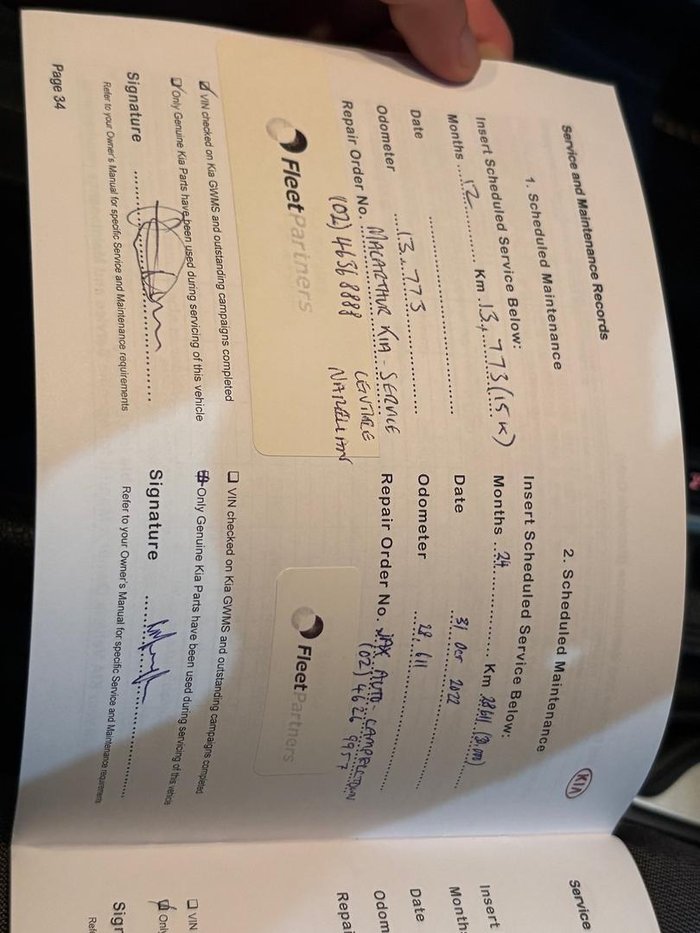 Service and Maintenance Records
KIA
1. Scheduled Maintenance
Insert Scheduled Service Below:
Months 12 Km 13,773 (15K)
Date
Odometer 13,773
Repair Order No. MACARTHUR KIA - SERVICE
CENTRE
(02) 4656 8888 NARELLAN
FleetPartners
VIN checked on Kia GWMS and outstanding campaigns completed
Only Genuine Kia Parts have been used during servicing of this vehicle
Signature
Refer to your Owner's Manual for specific Service and Maintenance requirements
Page 34
2. Scheduled Maintenance
Insert Scheduled Service Below:
Months 24 Km 28611 (30,000)
Date 31 Oct 2022
Odometer 28 611
Repair Order No. JAX AUTO - CAMPBELLTOWN
(02) 4626 9957
FleetPartners
VIN checked on Kia GWMS and outstanding campaigns completed
Only Genuine Kia Parts have been used during servicing of this vehicle
Signature
Refer to your Owner's Manual for specific Service and Maintenance requirements
Service
Insert
Month
Date
Odom
Repai
VIN
Onl
Sign
Ref